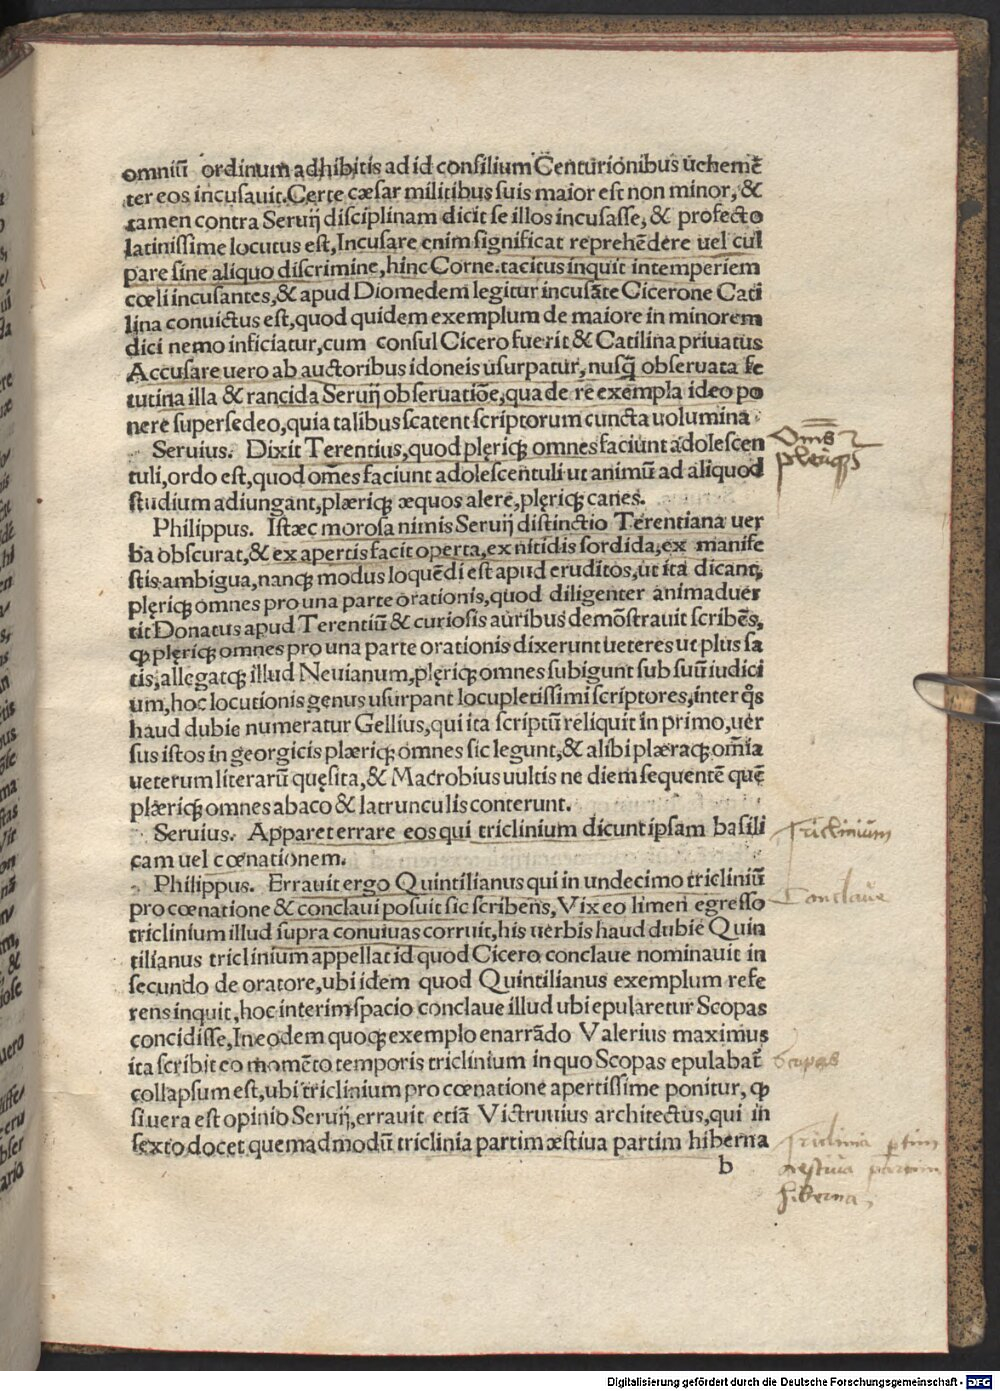 omniū ordinum adhibitis ad id consilium Centurionibus uehemē
ter eos incusauit. Certe cæsar militibus suis maior est non minor, &
tamen contra Seruij disciplinam dicit se illos incusasse, & profecto
latinissime locutus est, Incusare enim significat reprehēdere uel cul
pare sine aliquo discrimine, hinc Corne. tacitus inquit intemperiem
cœli incusantes, & apud Diomedem legitur incusāte Cicerone Cati
lina conuictus est, quod quidem exemplum de maiore in minorem
dici nemo inficiatur, cum consul Cicero fuerit & Catilina priuatus
Accusare uero ab auctoribus idoneis usurpatur, nusq̄ obseruata fe
tutina illa & rancida Seruij obseruatiōe, qua de re exempla ideo po
nere supersedeo, quia talibus scatent scriptorum cuncta uolumina
Seruius. Dixit Terentius, quod plęriq; omnes faciunt adolescen
tuli, ordo est, quod om̄es faciunt adolescentuli ut animū ad aliquod
studium adiungant, plæriq; æquos alere, plęriq; canes.
Philippus. Istæc morosa nimis Seruij distinctio Terentiana uer
ba obscurat, & ex apertis facit operta, ex nitidis sordida, ex manife
stis ambigua, nanq; modus loquēdi est apud eruditos, ut ita dicant,
plęriq; omnes pro una parte orationis, quod diligenter animaduer
tit Donatus apud Terentiū & curiosis auribus demōstrauit scribēs,
ꝙ plęriq; omnes pro una parte orationis dixerunt ueteres ut plus sa
tis, allegatq; illud Neuianum, plęriq; omnes subigunt sub suū iudici
um, hoc locutionis genus usurpant locupletissimi scriptores, inter q̄s
haud dubie numeratur Gellius, qui ita scriptū reliquit in primo, uer
sus istos in georgicis plæriq; omnes sic legunt, & alibi plæraq; om̄ia
ueterum literarū quęsita, & Macrobius uultis ne diem sequentē quē
plæriq; omnes abaco & latrunculis conterunt.
Seruius. Apparet errare eos qui triclinium dicunt ipsam basili
cam uel cœnationem.
Philippus. Errauit ergo Quintilianus qui in undecimo tricliniū
pro cœnatione & conclaui posuit sic scribens, Vix eo limen egresso
triclinium illud supra conuiuas corruit, his uerbis haud dubie Quin
tilianus triclinium appellat id quod Cicero conclaue nominauit in
secundo de oratore, ubi idem quod Quintilianus exemplum refe
rens inquit, hoc interim spacio conclaue illud ubi epularetur Scopas
concidisse, In eodem quoq; exemplo enarrādo Valerius maximus
ita scribit eo momēto temporis triclinium in quo Scopas epulabat̄
collapsum est, ubi triclinium pro cœnatione apertissime ponitur, ꝙ
si uera est opinio Seruij, errauit etiā Victruuius architectus, qui in
sexto docet quemadmodū triclinia partim æstiua partim hiberna
b
Om̄s
plęriq;
Triclinium
Conclaue
Scopas
Triclinia ptim
aestiua partim
hiberna
Digitalisierung gefördert durch die Deutsche Forschungsgemeinschaft - DFG